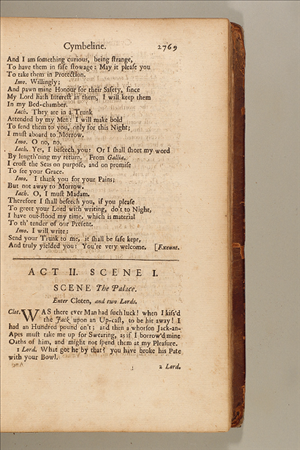 Cymbeline. 2769
And I am something curious, being strange,
To have them in safe stowage: May it please you
To take them in Protection.
Imo. Willingly;
And pawn mine Honour for their Safety, since
My Lord hath Interest in them, I will keep them
In my Bed-chamber.
Iach. They are in a Trunk
Attended by my Men: I will make bold
To send them to you, only for this Night;
I must aboard to Morrow.
Imo. O no, no.
Iach. Yes, I beseech you: Or I shall short my word
By length'ning my return. From Gallia,
I crost the Seas on purpose, and on promise
To see your Grace.
Imo. I thank you for your Pains;
But not away to Morrow.
Iach. O, I must Madam.
Therefore I shall beseech you, if you please
To greet your Lord with writing, do't to Night,
I have out-stood my time, which is material
To th' tender of our Present.
Imo. I will write:
Send your Trunk to me, it shall be safe kept,
And truly yielded you: You're very welcome. [Exeunt.
ACT II. SCENE I.
SCENE The Palace.
Enter Cloten, and two Lords.
Clot. WAS there ever Man had such luck! when I kiss'd
the Jack upon an Up-cast, to be hit away! I
had an Hundred pound on't; and then a whorson Jack-an-
Apes must take me up for Swearing, as if I borrow'd mine
Oaths of him, and might not spend them at my Pleasure.
1 Lord. What got he by that? you have broke his Pate
with your Bowl.
2 Lord.